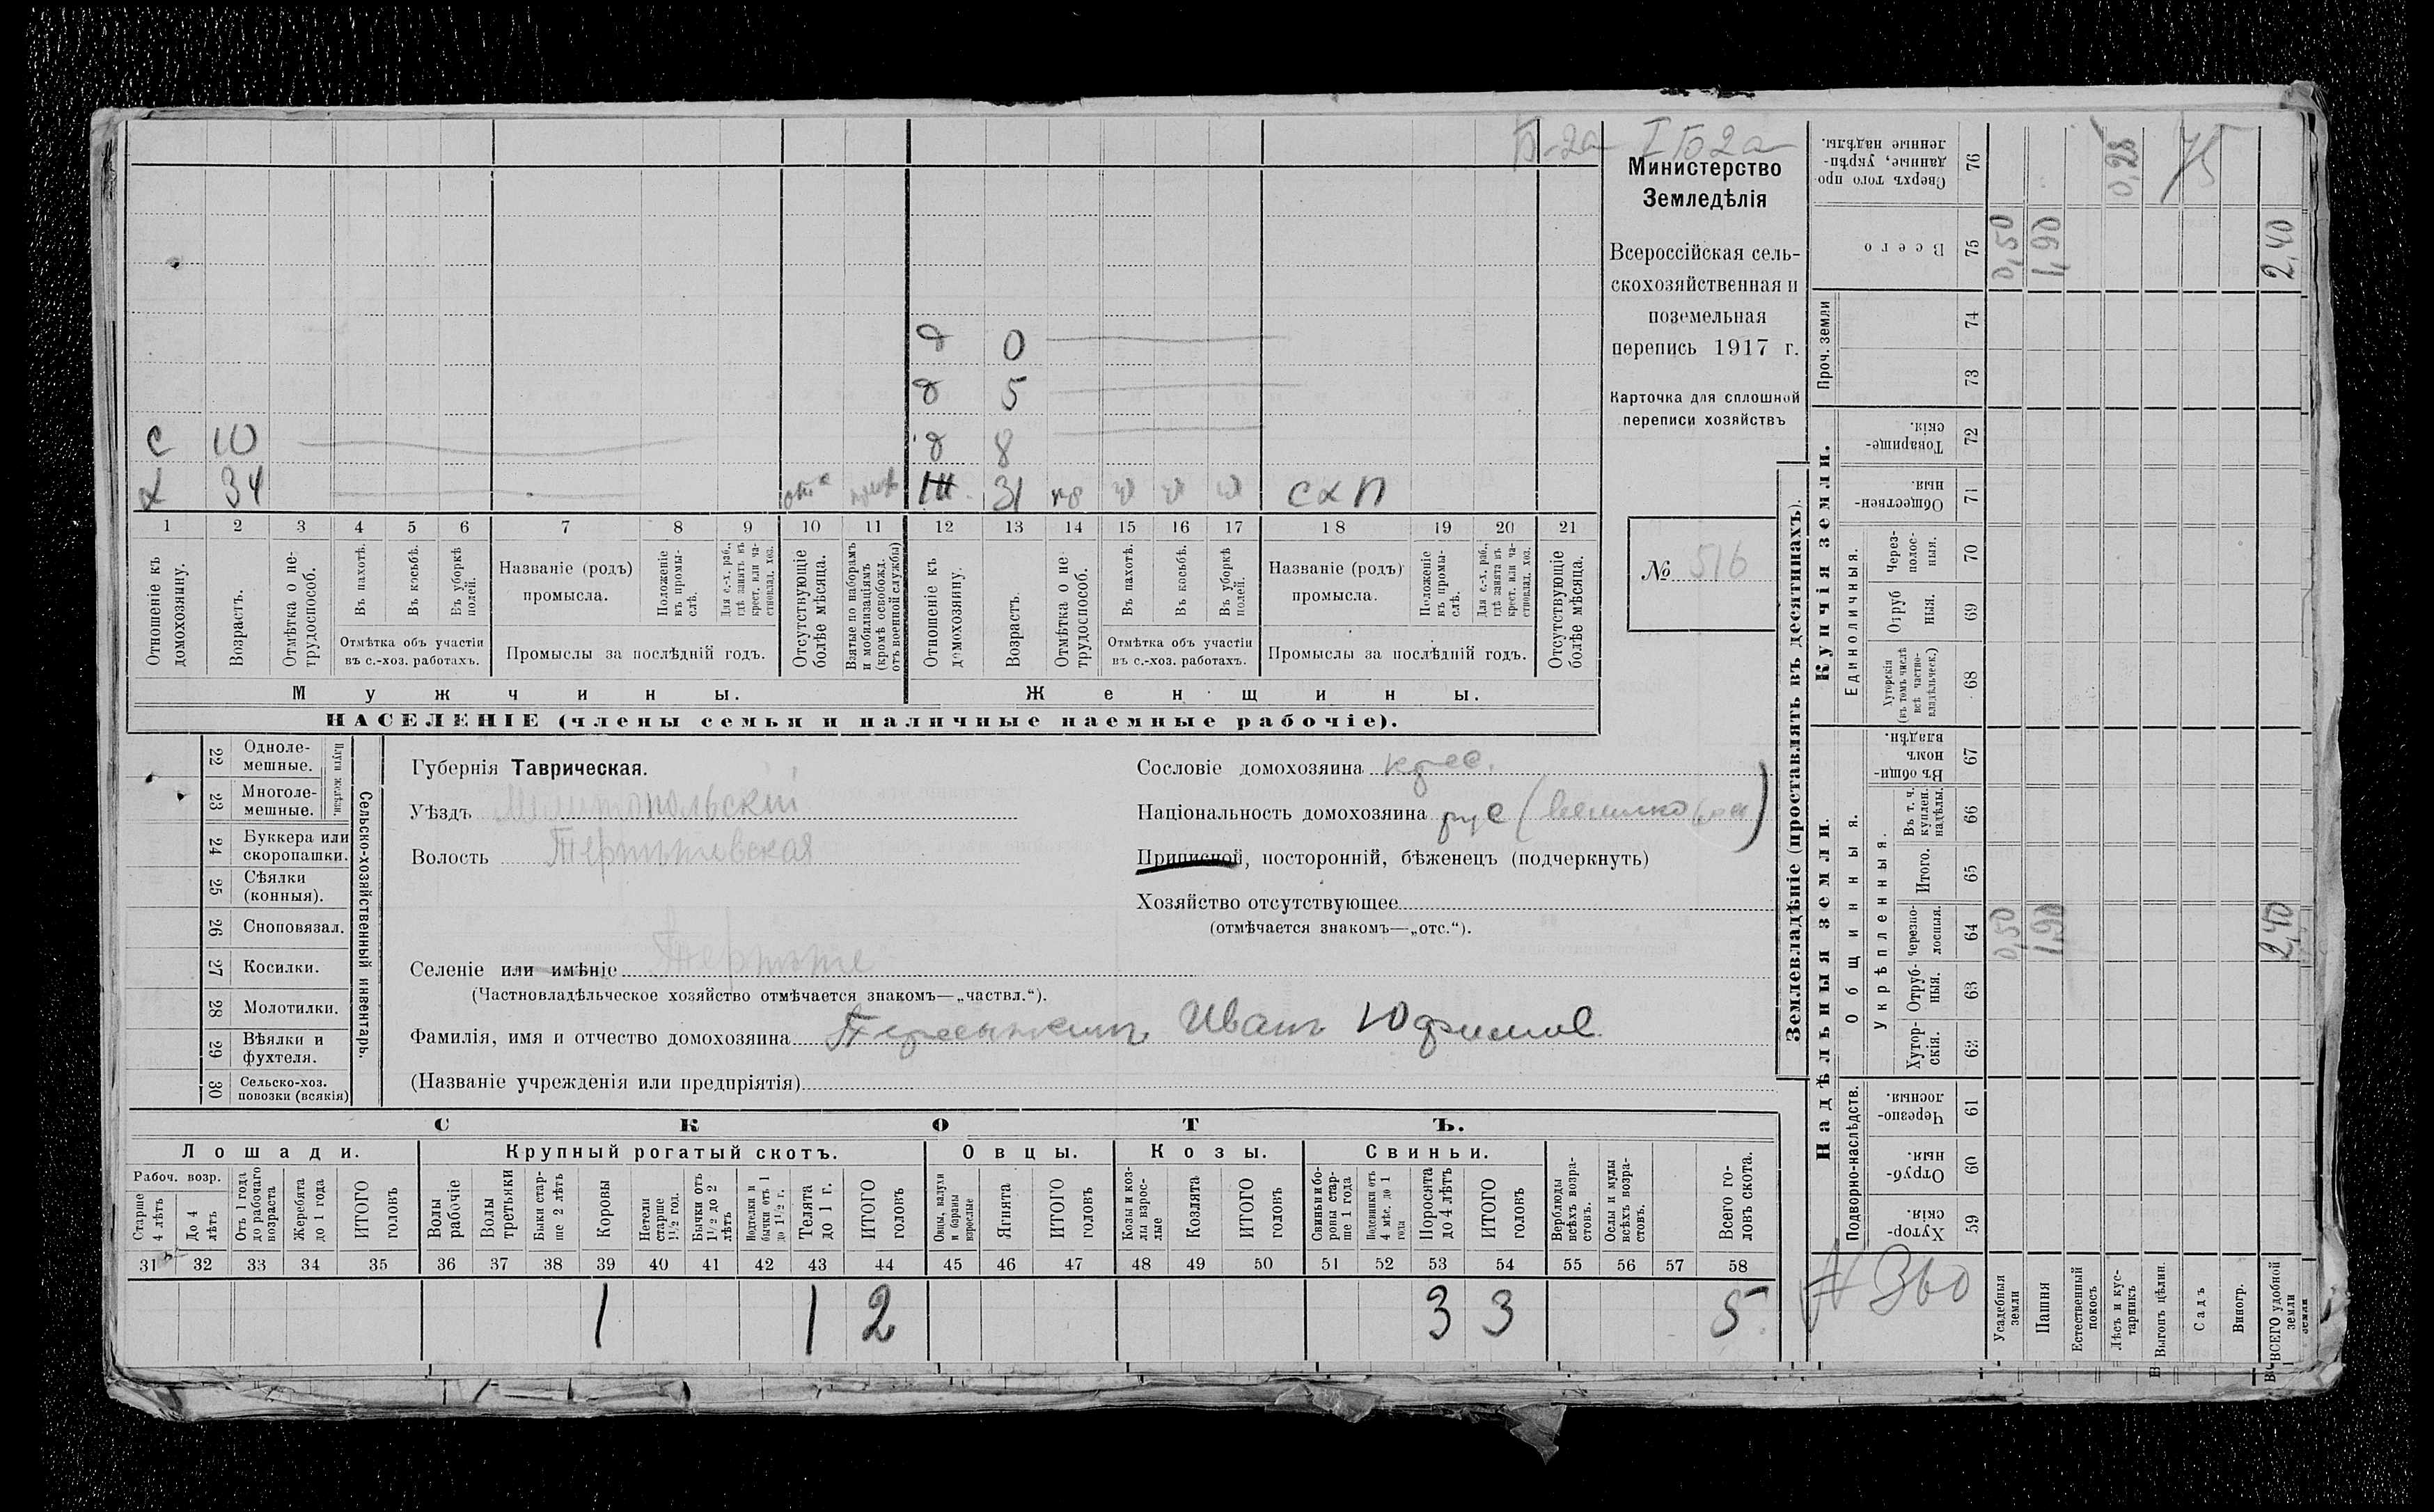 Б-2а
I Б2а
Министерство
Земледѣлія
Всероссійская сель-
скохозяйственная и
поземельная
перепись 1917 г.
Карточка для сплошной
переписи хозяйствъ
№ 516
д 0
д 5
с 10 д 8
х 34 31 схп
1 2 3 4 5 6 7 8 9 10 11 12 13 14 15 16 17 18 19 20 21
Отношеніе къ домохозяину.
Возрастъ.
Отмѣтка о не-трудоспособ.
Въ пахотѣ.
Въ косьбѣ.
Въ уборкѣ полей.
Отмѣтка объ участіи
въ с.-хоз. работахъ.
Названіе (родъ)
промысла.
Положеніе въ промы-слѣ.
Для с.-х. раб., гдѣ занятъ въ крест. или ча-стновлад. хоз.
Промыслы за послѣдній годъ.
Отсутствующіе болѣе мѣсяца.
Взятые по наборамъ и мобилизаціямъ (кромѣ освобожд. отъ военной службы)
Отношеніе къ домохозяину.
Возрастъ.
Отмѣтка о не-трудоспособ.
Въ пахотѣ.
Въ косьбѣ.
Въ уборкѣ полей.
Отмѣтка объ участіи
въ с.-хоз. работахъ.
Названіе (родъ)
промысла.
Положеніе въ промы-слѣ.
Для с.-х. раб., гдѣ занята въ крест. или ча-стновлад. хоз.
Промыслы за послѣдній годъ.
Отсутствующіе болѣе мѣсяца.
Мужчины. Женщины.
НАСЕЛЕНІЕ (члены семьи и наличные наемные рабочіе).
22 Одноле-мешные.
23 Многоле-мешные.
Плуги желѣзн.
24 Буккера или скоропашки.
25 Сѣялки (конныя).
26 Сноповязал.
27 Косилки.
28 Молотилки.
29 Вѣялки и фухтеля.
30 Сельско-хоз. повозки (всякія)
Сельско-хозяйственный инвентарь.
Губернія Таврическая.
Уѣздъ Мелитопольскій
Волость
Селеніе или имѣніе
(Частновладѣльческое хозяйство отмѣчается знакомъ—„частвл.“).
Фамилія, имя и отчество домохозяина Иванъ
(Названіе учрежденія или предпріятія)
Сословіе домохозяина крес.
Національность домохозяина рус
Приписной, посторонній, бѣженецъ (подчеркнуть)
Хозяйство отсутствующее
(отмѣчается знакомъ—„отс.“).
СКОТЪ.
Лошади. Крупный рогатый скотъ. Овцы. Козы. Свиньи.
Рабоч. возр.
Старше 4 лѣтъ
До 4 лѣтъ
Отъ 1 года до рабочаго возраста
Жеребята до 1 года
ИТОГО головъ
Волы рабочіе
Волы третьяки
Быки стар-ше 2 лѣтъ
Коровы
Нетели старше 1½ год.
Бычки отъ 1½ до 2 лѣтъ
Подтелки и бычки отъ 1 до 1½ г.
Телята до 1 г.
ИТОГО головъ
Овцы, валухи и бараны взрослые
Ягнята
ИТОГО головъ
Козы и коз-лы взрос-лые
Козлята
ИТОГО головъ
Свиньи и бо-ровы стар-ше 1 года
Подсвинки отъ 4 мѣс. до 1 года
Поросята до 4 лѣтъ
ИТОГО головъ
Верблюды всѣхъ возра-стовъ.
Ослы и мулы всѣхъ возра-стовъ.
Всего го-ловъ скота.
31 32 33 34 35 36 37 38 39 40 41 42 43 44 45 46 47 48 49 50 51 52 53 54 55 56 57 58
1 1 2 3 3 5
Землевладѣніе (проставлять въ десятинахъ).
Надѣльныя земли. Купчія земли. Проч. земли
Подворно-наслѣдств.
Общинныя.
Укрѣпленныя.
Единоличныя.
Хутор-скія. 59
Отруб-ныя. 60
Черезпо-лосныя. 61
Хутор-скія. 62
Отруб-ныя. 63
Черезпо-лосныя. 64 0,50 1,90 2,40
Итого. 65
Въ т. ч. куплен. надѣлы. 66
Въ общи-номъ владѣн. 67
Хуторскія (въ томъ числѣ всѣ частно-владѣльческ.) 68
Отруб ныя. 69
Через-полос-ныя. 70
Обществен-ныя. 71
Товарище-скія. 72
73
74
Всего 75 0,50 1,90 2,40
Сверхъ того про-данные, укрѣп-ленные надѣлы. 76 0,28
75
№ 360
Усадебныя земли
Пашня
Естественный покосъ
Лѣсъ и кус-тарникъ
Выгонъ цѣлин.
Садъ
Виногр.
ВСЕГО удобной земли